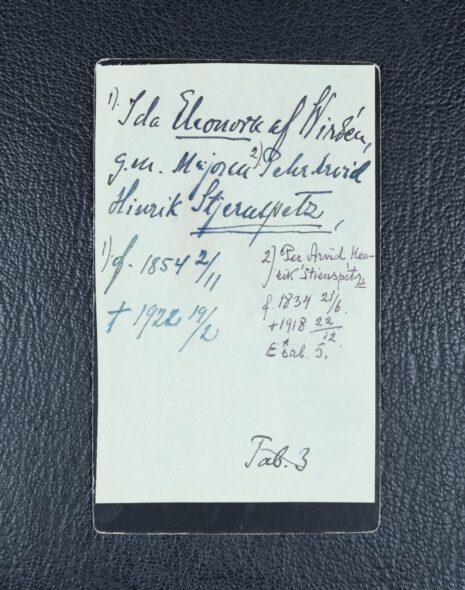 1). Ida Eleonora af Wirsén,
g.m. Majoren 2) Pehr Arvid
Hinrik Stjernspetz,
1) f. 1854 2/11
† 1922 19/2
2) Per Arvid Hen-
rik Stiernspetz
f. 1834 21/6.
† 1918 22/12.
E tab. 5.
Tab. 3